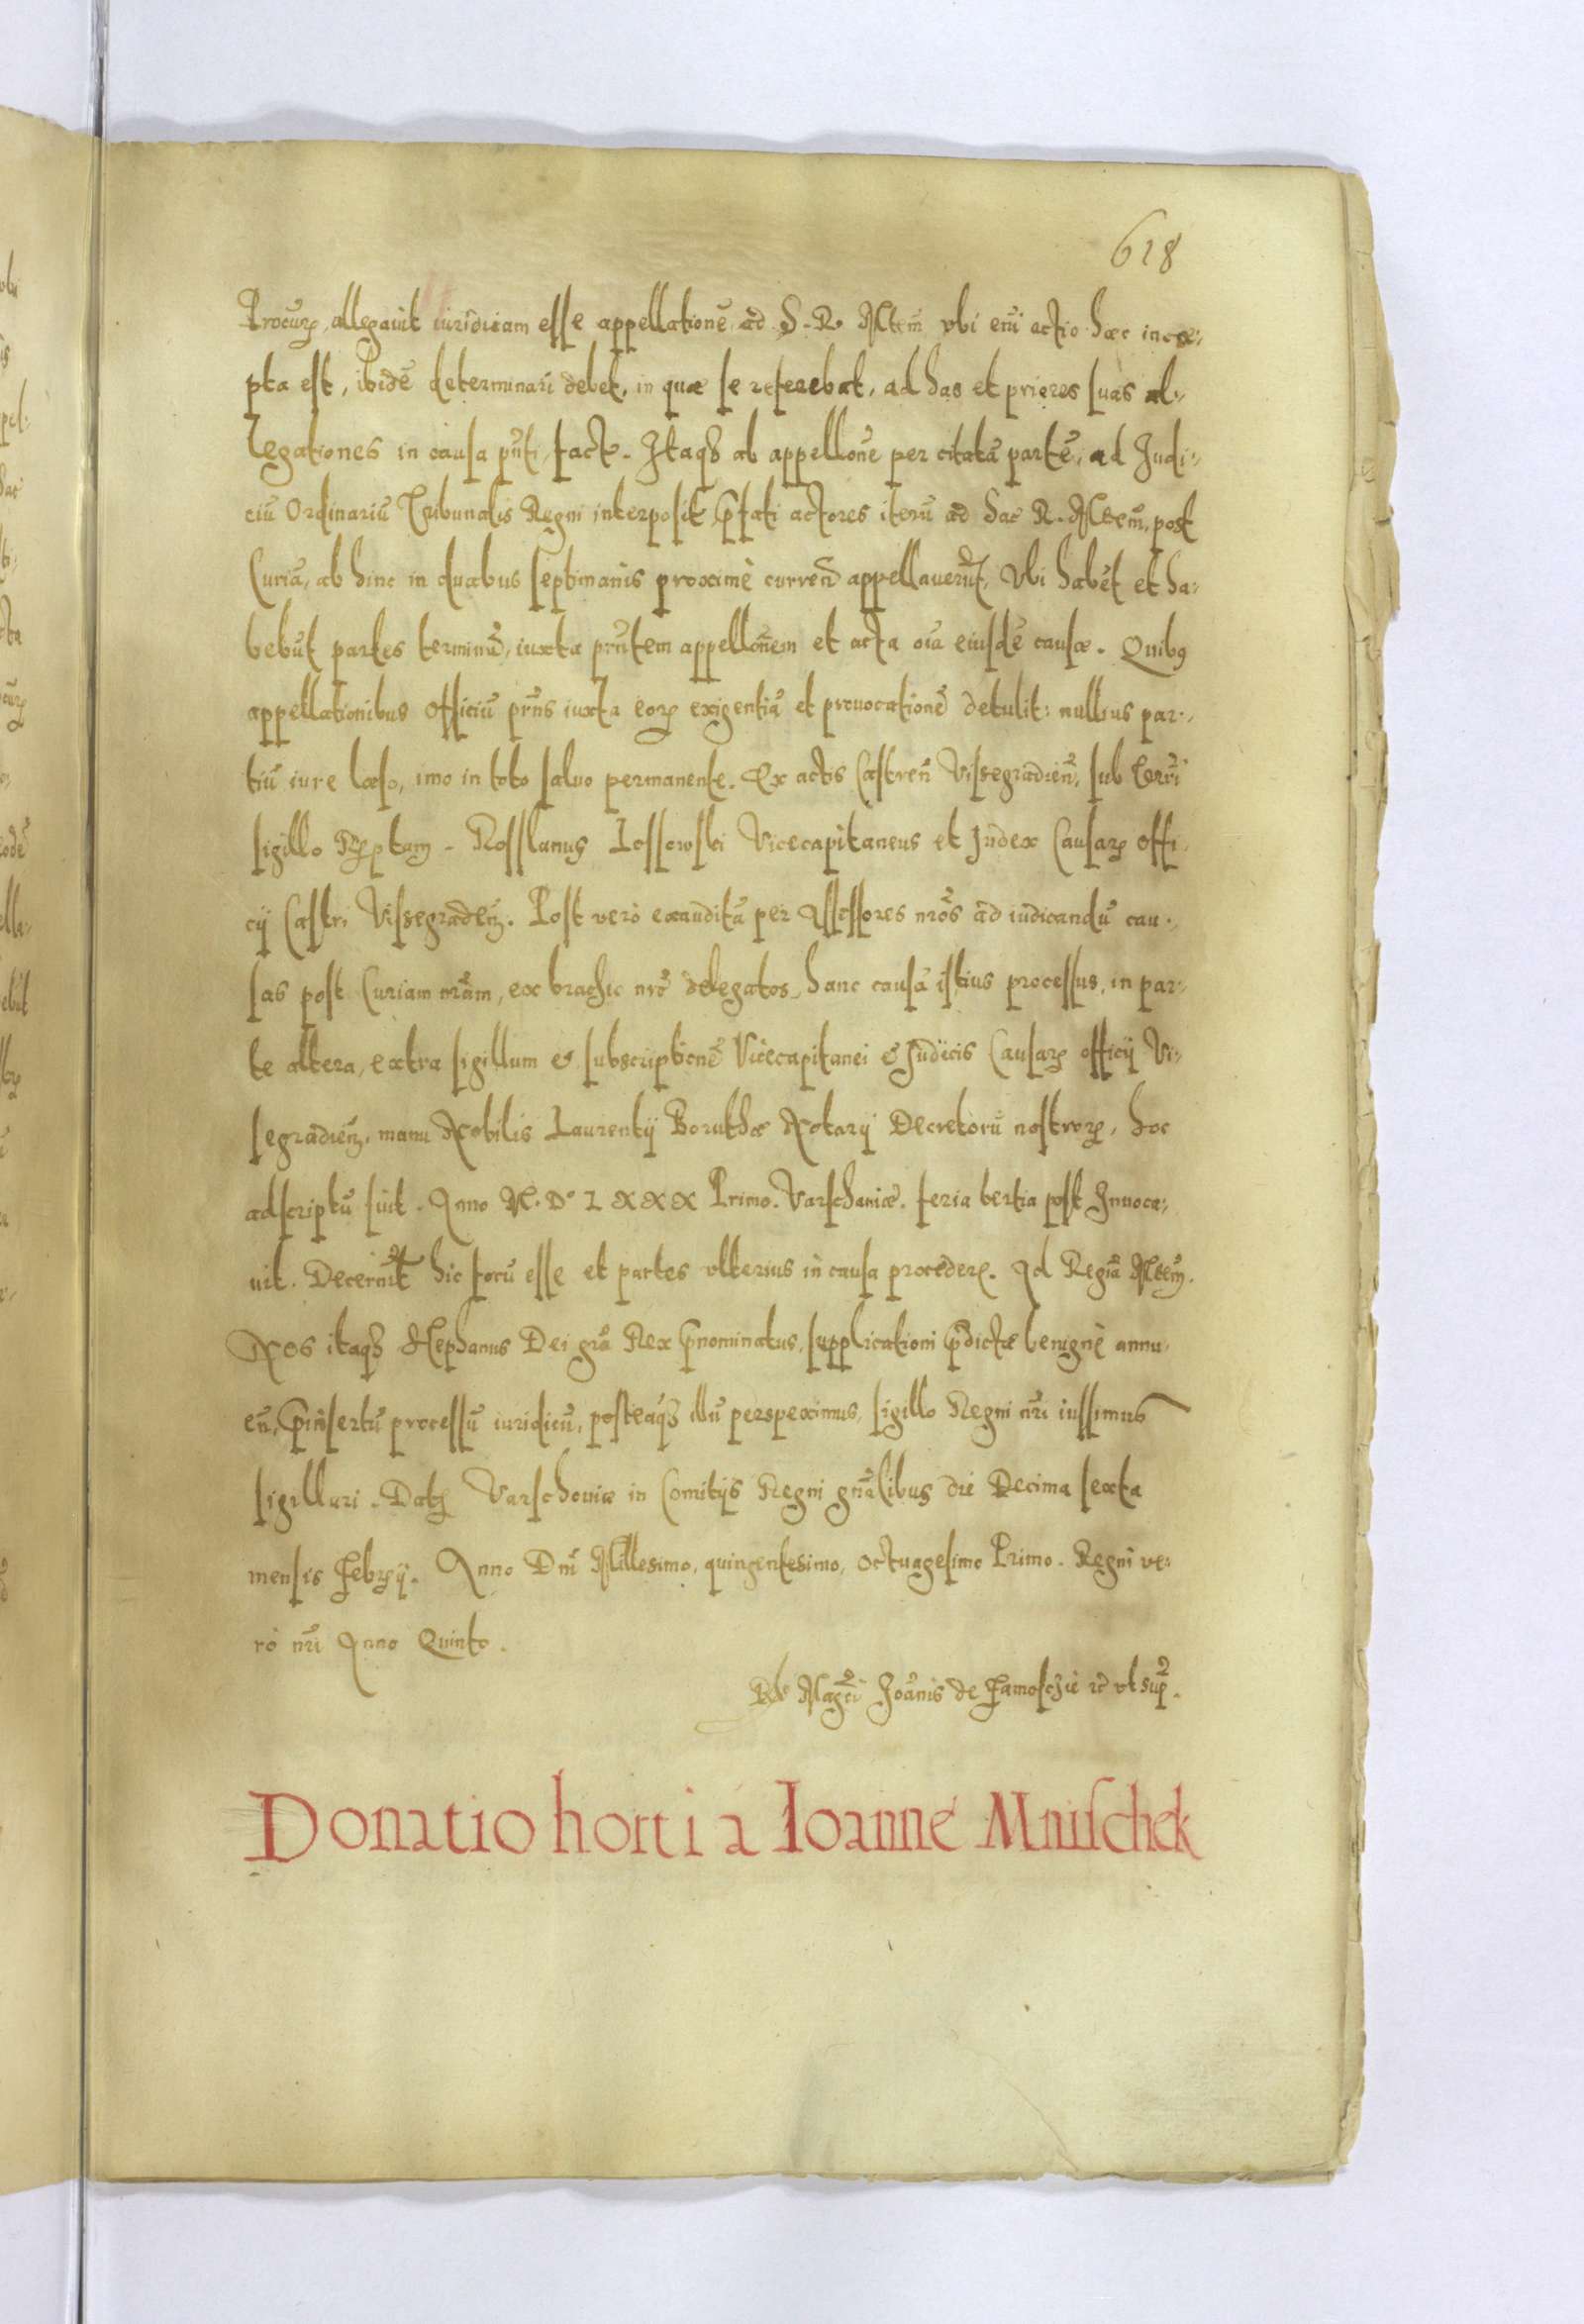 618
Procurꝝ, allegavit iuridicam esse appellationē, ad S. R. Mtem̄ vbi em̄ actio hæc incœ-
pta est, ibidē determinari debet, in quæ se referebat, ad has et priores suas al-
legationes in causa pn̄ti, factæ. Itaqȝ ab appellōne per citatā partē, ad Judi-
ciū Ordinariū Tribunalis Regni interposit, p̄fati actores iterū ad Sac R. Mtem̄, post
Curiā, ab hinc in duabus septimanis proximè curren̄ appellaverūt, Vbi habēt et ha-
bebūt partes terminū, iuxta prn̄tem appellōnem et acta oīa eiusdē causæ. Quibꝯ
appellationibus Officiū prn̄s iuxta eorꝝ exigentiā et provocationē detulit: nullius par-
tiū iure læso, imo in toto salvo permanente. Ex actis Castren̄ Vissegradien̄, sub
sigillo Rꝑtam - Rosslanus Lossowski Vicecapitaneus et Judex Causarꝝ Offi-
cij Castri Vissegradien̄. Post verò exauditā per Assessores nrōs ad iudicandū cau-
sas post Curiam nrām, ex brachio nrō delegatos, hanc causā istius processus, in par-
te altera, extra sigillum & subscriptionē Vicecapitanei & Judicis Causarꝝ officij Vi-
segradien̄, manu Nobilis Laurentij Boruthæ Notarij Decretorū nostrorꝝ, hoc
adscriptū fuit. Anno M. D° LXXX Primo. Varschaviæ. feria tertia post Invoca-
vit. Decernūt hic focū esse et partes vlterius in causa procederꝫ. Ad Regiā Mtem̄.
Nos itaqȝ Stephanus Dei grā Rex p̄nominatus, supplicationi p̄dictæ benignè annu-
en̄, p̄insertū processū iuridicū, posteaqȝ illū perspeximus, sigillo Regni nrī iussimus
sigillari. Datꝫ Varschoviæ in Comitijs Regni gnrālibus die Decima sexta
mensis Febrꝫij. Anno Dnī Millesimo, quingentesimo, Octuagesimo Primo. Regni ve-
rò nrī Anno Quinto.
Rele Mag̃ci Joānis de Zamosczie rč vt supꝛ.
Donatio horti a Ioanne Mnischek